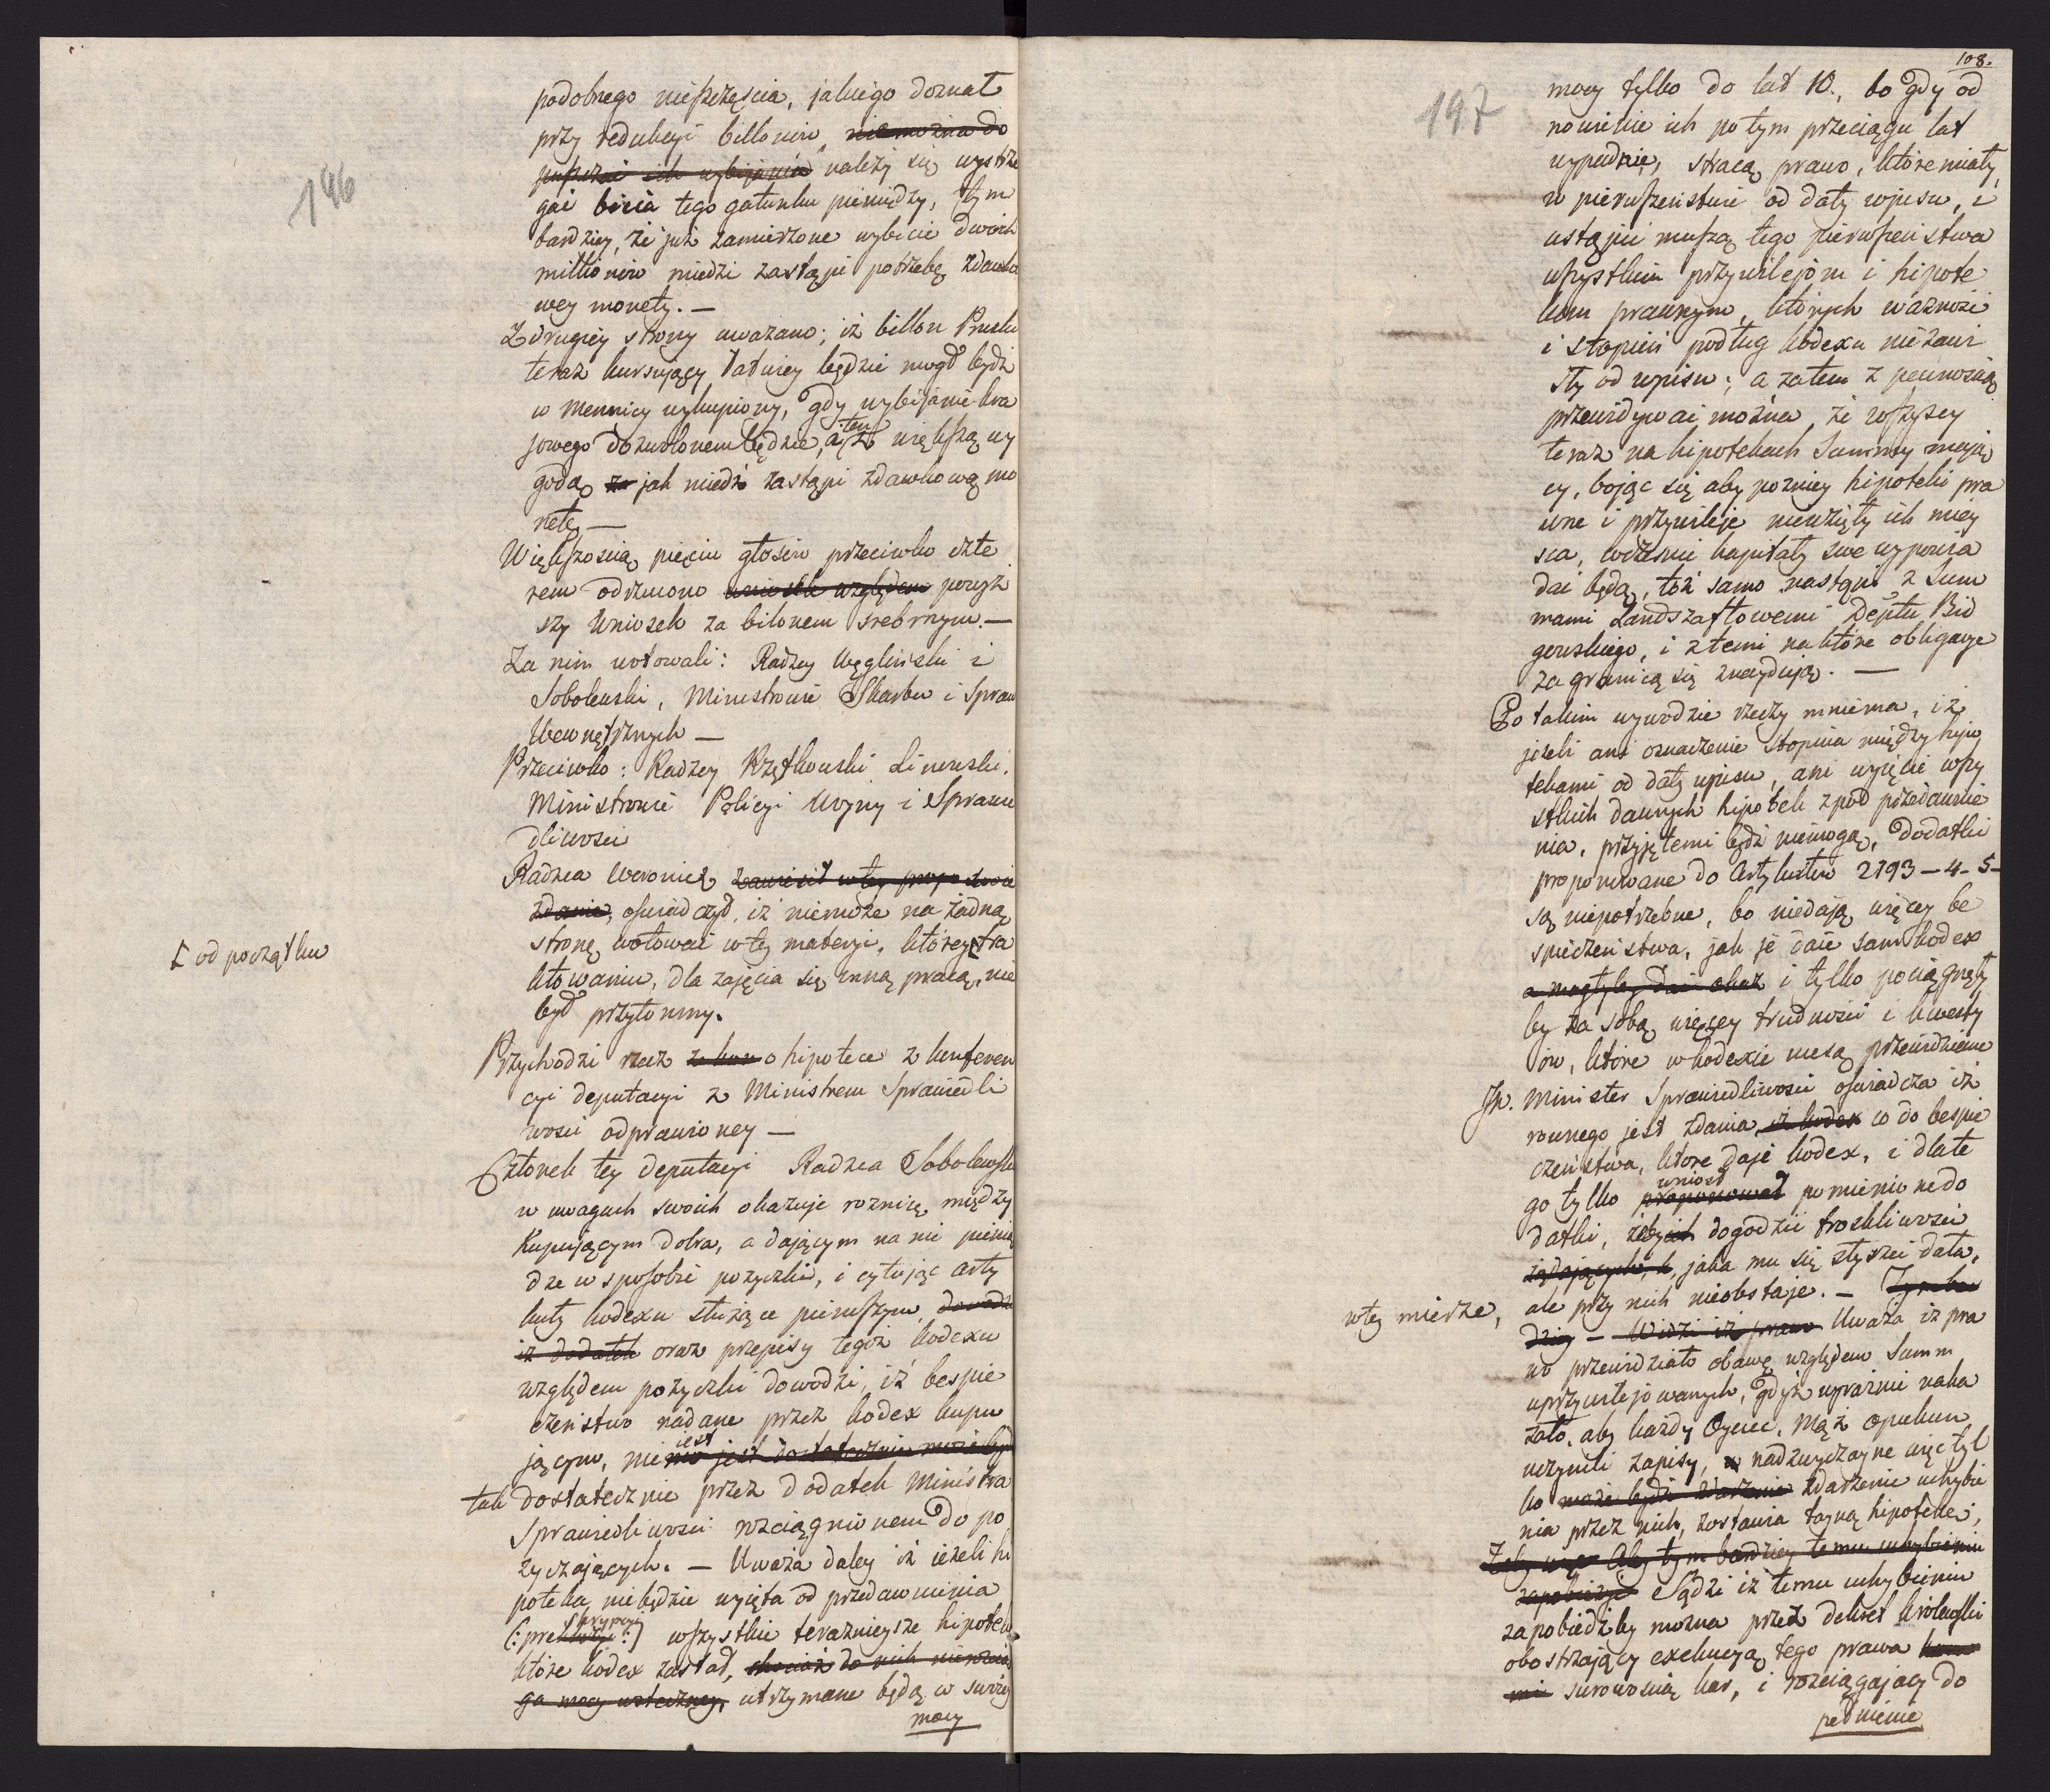 196
podobnego nieszczęścia, jakiego doznał
przy redukcyi billonów, niemożna do
puszczać ich wybijania należy się wystrze
gać bicia tego gatunku pieniędzy, tym
bardziey, że już zamierzone wybicie dwóch
millionów miedzi zastąpi potrzebę zdawko
wey monety. —
Z drugiey strony uważano; iż billon Pruski
teraz kursujący łatwiey będzie mógł bydź
w Mennicy wykupiony, gdy wybijanie kra
jowego dozwolonem będzie, a ten
z większą wy
godą za jak miedź zastąpi zdawkową mo
netę —
Większością pięciu głosów przeciwko czte
rem odrzucono wniosek względem powyż
szy Wniosek za bilonem srebrnym. —
Za nim wotowali: Radzcy Węgliński i
Sobolewski, Ministrowie Skarbu i Spraw
Wewnętrznych —
Przeciwko: Radzcy Rzętkowski Linowski,
Ministrowie Policyi Woyny i Sprawie
dliwości
Radzca Woronicz zawiesił w tey propo swoie
zdanie, oświadczył, iż niemoże na żadną
stronę wotować w tey materyi, którey tra
ktowaniu, dla zajęcia się inną pracą, nie
był przytomny.
[ od początku
Przychodzi rzecz o hipotece z konferen
cyi deputacyi z Ministrem Sprawiedli
wości odprawioney —
Członek tey deputacyi Radzca Sobolewski
w uwagach swoich okazuje roznicę między
Kupującym dobra, a dającym na nie pienią
dze w sposobie pozyczki, i cytując arty
kuły kodexu służące pierwszym, dowodzi
iż dodatek oraz przepisy tegoż kodexu
względem pożyczki dowodzi, iż bespie
czeństwo nadane przez kodex kupu
jącym, nie jest
jest dostatecznie może bydź
tak dostatecznie przez dodatek Ministra
Sprawiedliwości rozciągnionem do po
zyczających. — Uważa daley iż ieżeli hi
poteka niebędzie wyięta od przedawnienia
(: preskrypcyi :) wszystkie teraznieysze hipoteki
które kodex zastał, chociaż do nich nierozcią
ga mocy wsteczney, utrzymane będą w swoiey
mocy
108.
197
mocy tylko do lat 10., bo gdy od
nowienie ich po tym przeciągu lat
wypadnie, stracą prawo, które miały
w pierwszeństwie od daty wpisu, i
ustąpić muszą tego pierwszeństwa
wszystkim przywilejom i hipote
kom prawnym, których ważność
i stopień podług kodexu niezawi
sły od wpisu; a zatem z pewnością
przewidywać można, że wszyscy
teraz na hipotekach Summy mają
cy, bojąc się aby pozniey hipoteki pra
wne i przywileje niewzięły ich miey
sca, wcześnie kapitały swe wypowia
dać będą, toż samo nastąpi z Sum
mami Landszaftowemi Deptu Bid
goskiego, i z temi na które obligacye
za granicą się znaydują. —
Po takim wywodzie rzeczy mniema, iż
jeżeli ani oznaczenie stopnia między hipo
tekami od daty wpisu, ani wyięcie wszy
stkich dawnych hipotek z pod przedawnie
nia, przyjętemi bydź niemogą, dodatki
proponowane do Artykułów 2193 — 4 - 5 -
są niepotrzebne, bo niedają więcey be
spieczeństwa, jak je daie sam kodex
a mogłyby dać okaz i tylko pociągnęły
by za sobą więcey trudności i kwesty
ów, które w kodexie niesą przewidziane
JW. Minister Sprawiedliwości oświadcza iż
rownego jest zdania, iż kodex co do bespie
czeństwa, które daje kodex, i dlate
go tylko wniosł
proponował pomienione do
datki, żeby ich dogodzić troskliwości
żądających, k, jaka mu się słyszeć dała,
ale przy nich nieobstaje. — Tym bar
w tey mierze,
dziey — Widzi iż prawo Uważa iż pra
wo przewidziało obawę względem Summ
uprzywilejowanych, gdyż wyraźnie naka
zało, aby każdy Oyciec, Mąż opiekun
uczynili zapisy, nadzwyczayne więc tyl
ko może bydź zdarzenie zdarzenie uchybie
nia przez nich, zostawia tayną hipotekę;
Żeby więc Aby tym bardziey temu uchybieniu
zapobieżyć Sądzi iż temu uchybieniu
zapobiedz by można przez dekret krolewski
obostrzający exekucyą tego prawa
surowością kar, i rozciągający do
pełnienie